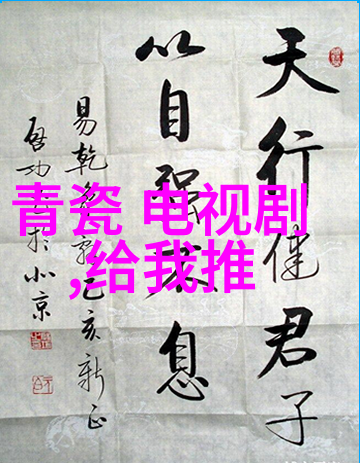 天行健君子
以自强不息
易乾乙亥新正
启功於北京
青瓷 电视剧
,给我推